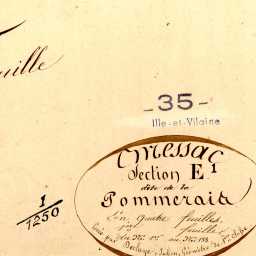 uille
_35_
Ille-et-Vilaine
Messac
Section E¹
dite de la
Pommerais
En quatre feuilles.
1ʳᵉ feuille.
du Nº 1 au Nº 188
1/1250